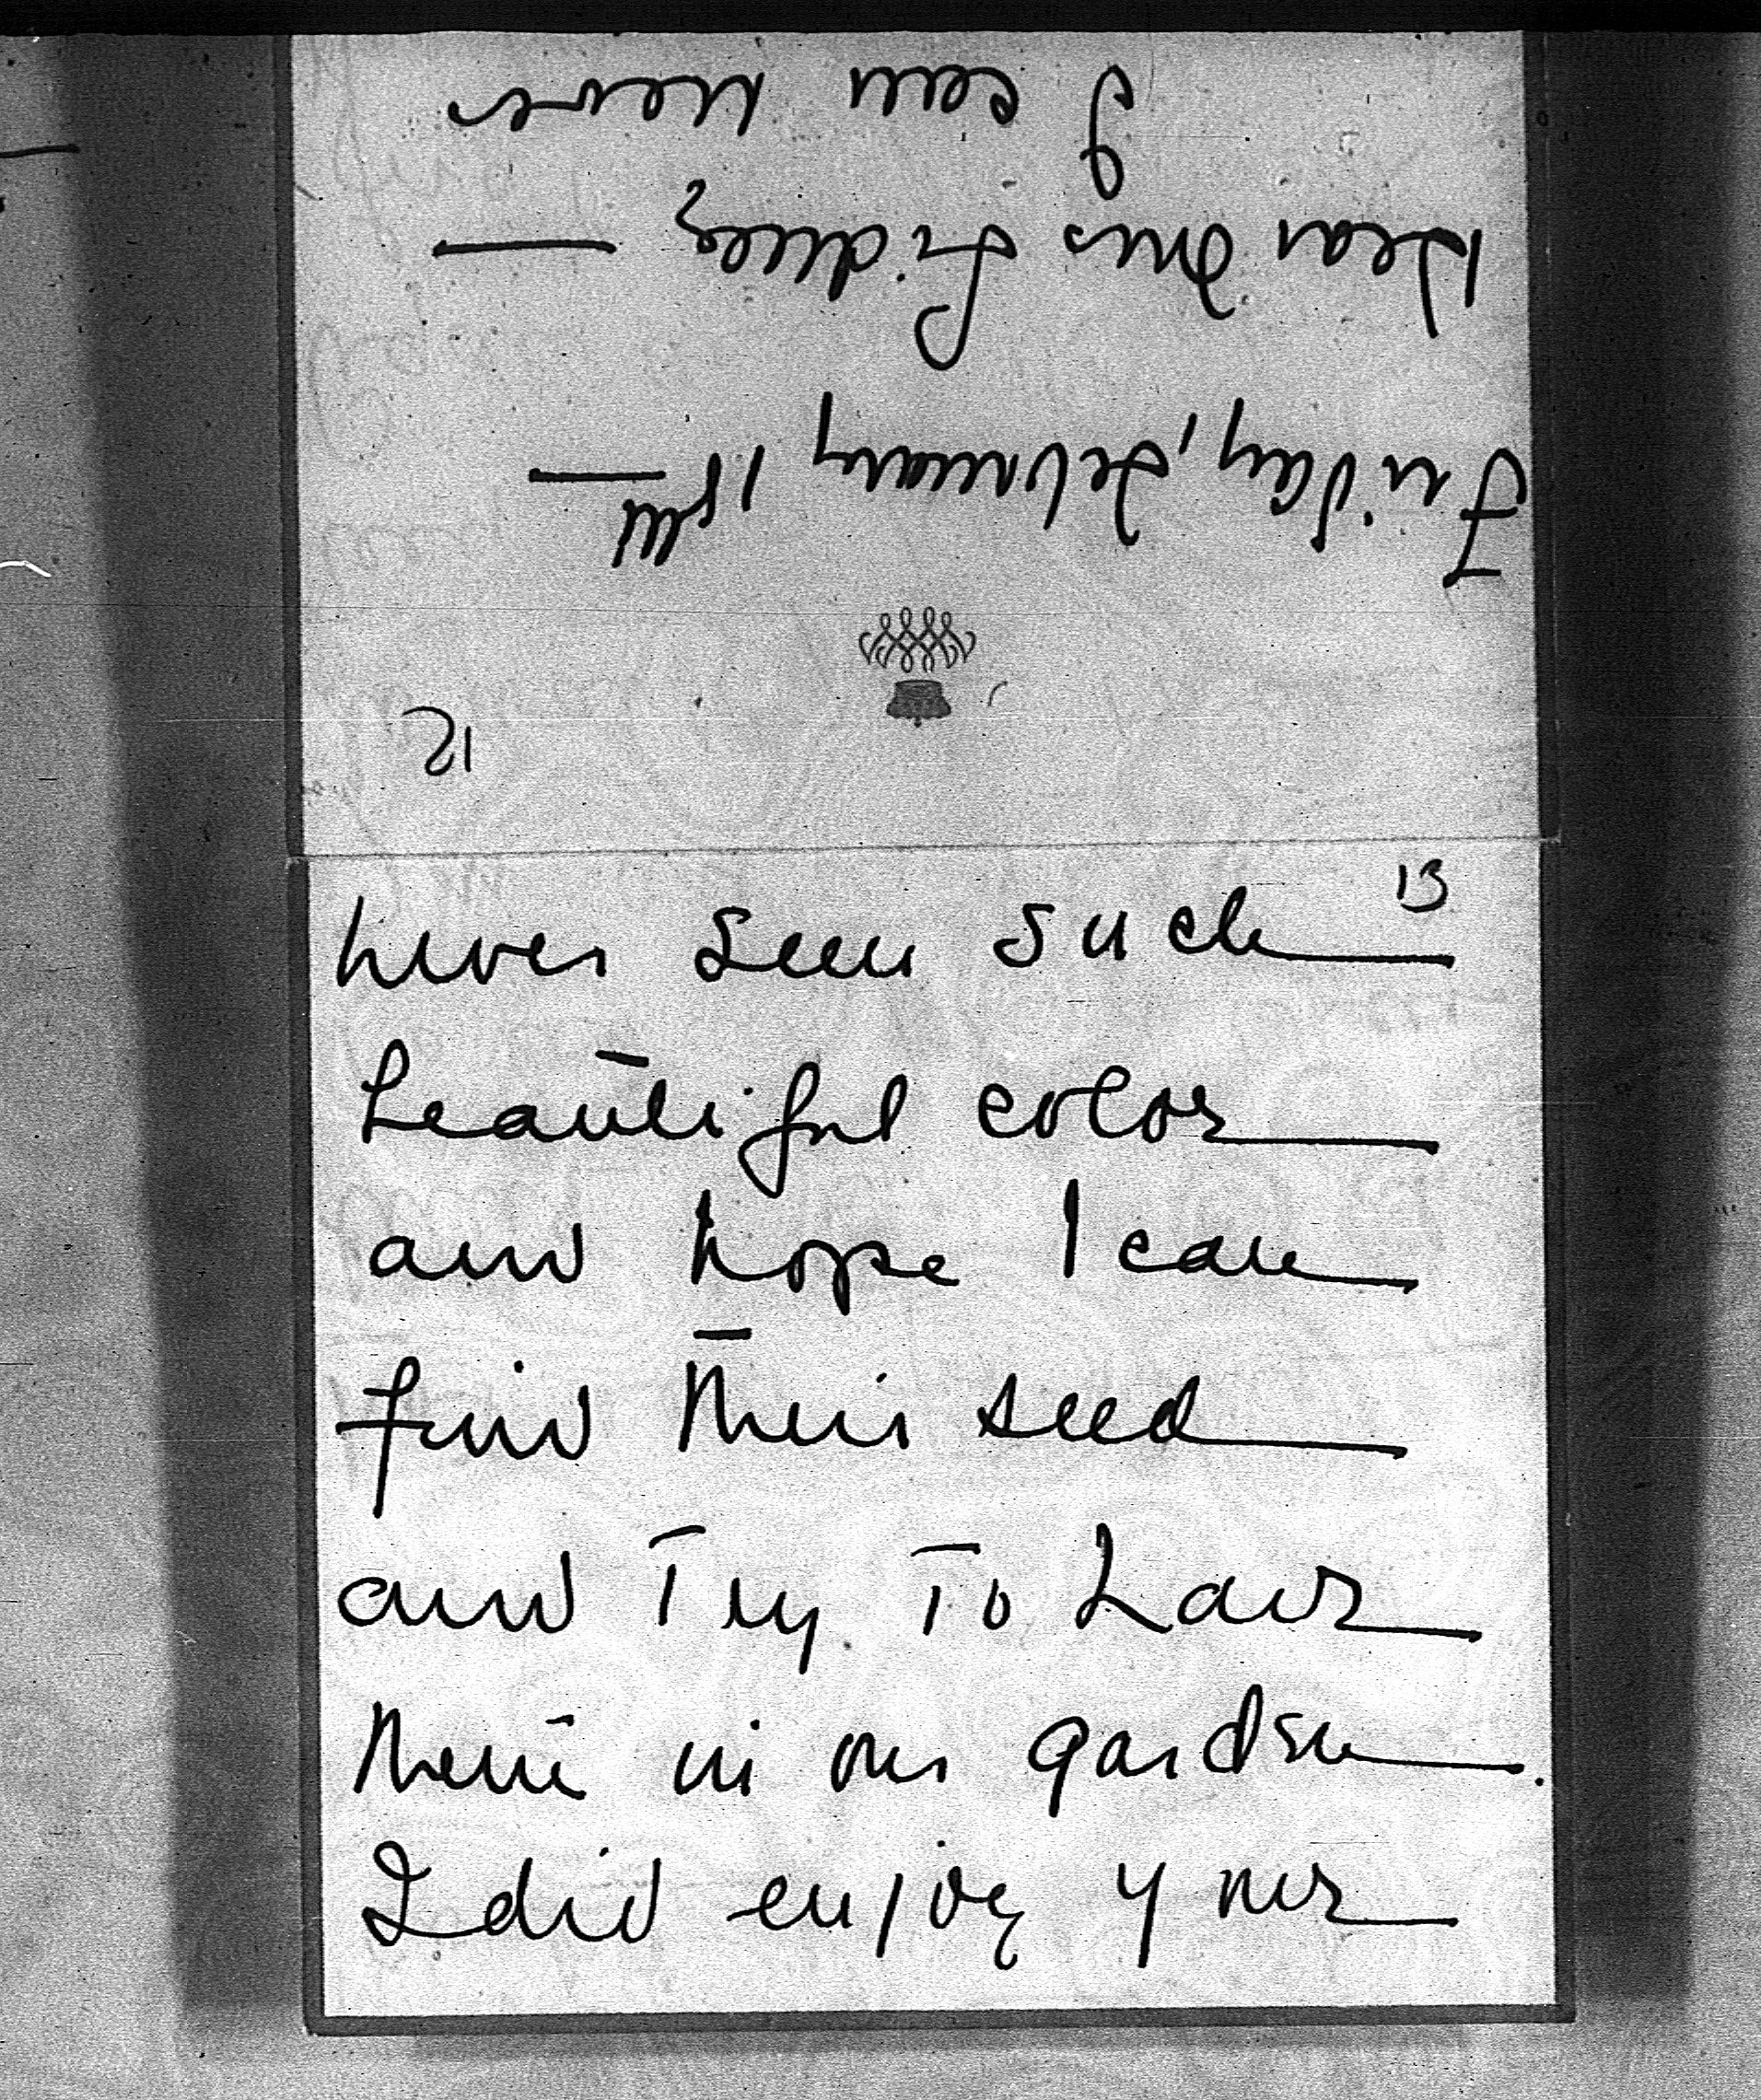 12
Friday, February 18th —
Dear Mrs —
I can never
13
never seen such
beautiful color
and hope I can
find their seed
and Try To have
them in our garden.
I did enjoy your